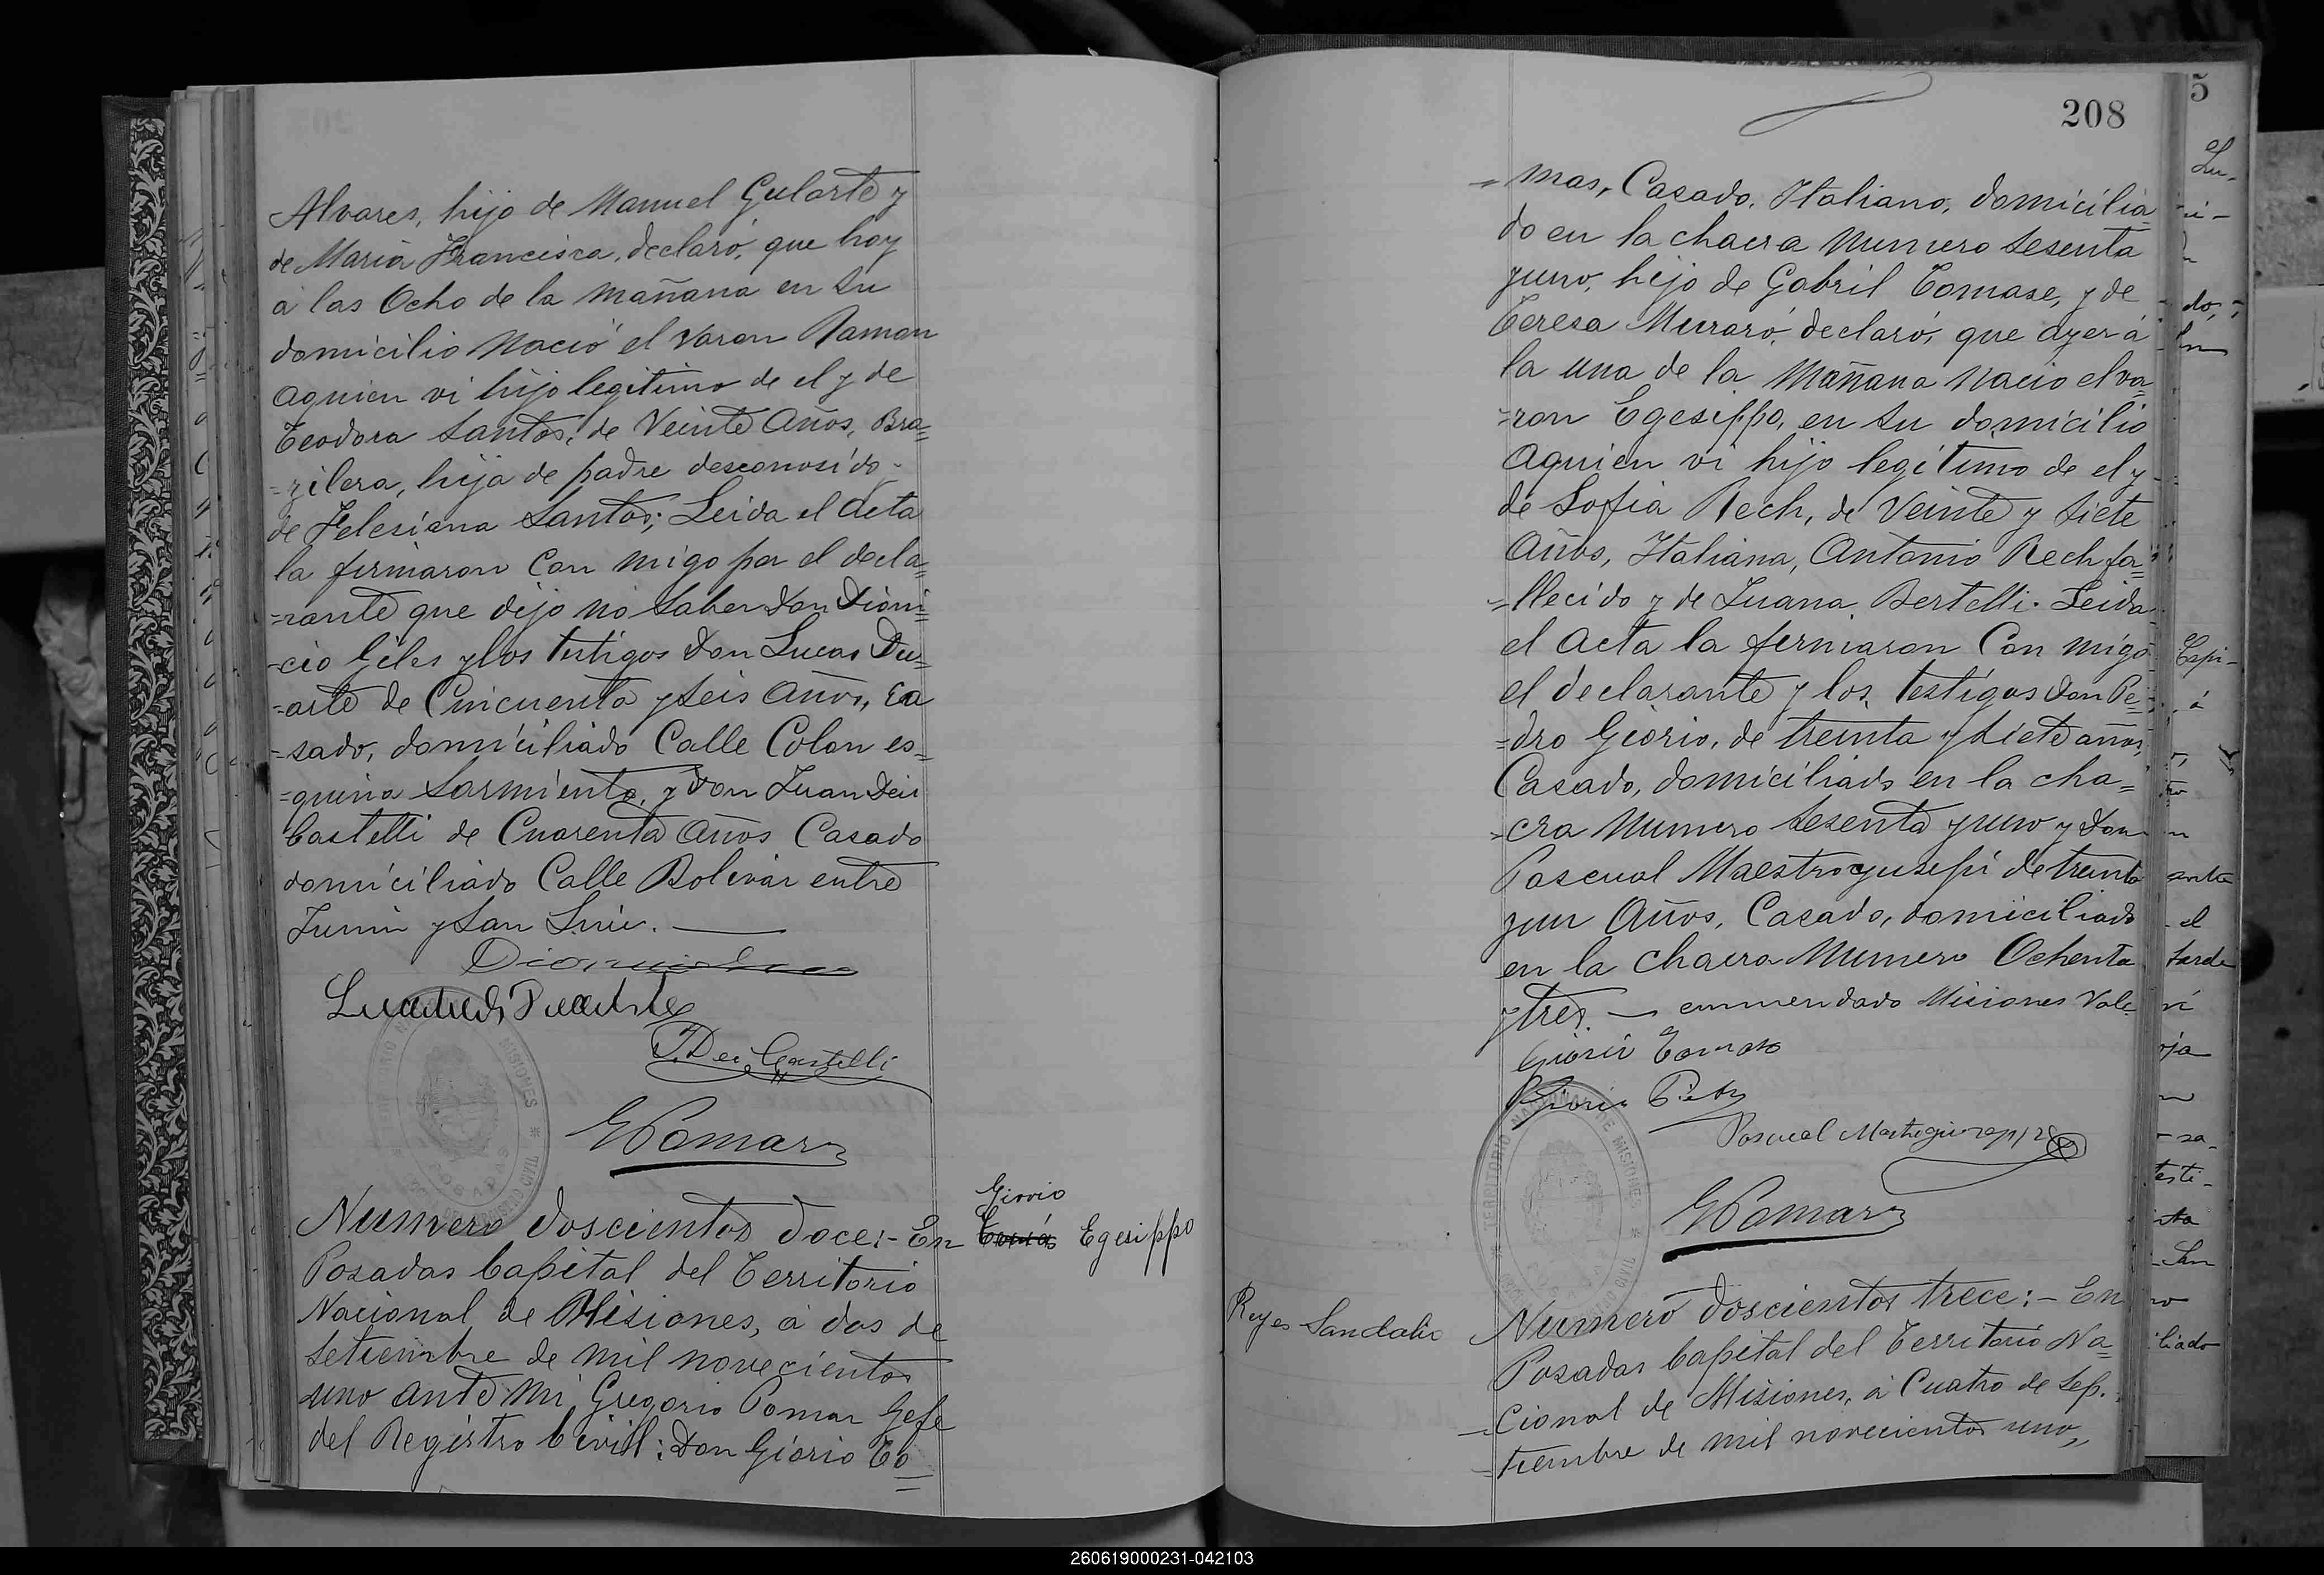 Alvares, hijo de Manuel Gularte y
de Maria Francisca, declaró, que hoy
á las Ocho de la mañana en su
domicilio Nació el varon Ramon
aquien vi hijo legitimo de el y de
Teodora Santos, de Veinte Años, Bra=
=zilera, hija de padre desconosido
de Felesiana Santos; Leida el Acta
la firmaron Con migo por el decla=
=rante que dijo no Saber Don Dioni=
=cio Geles y los testigos Don Lucas Du=
=arte de Cincuenta y Seis Años, Ca
=sado, domiciliado Calle Colon es=
=quina Sarmiento, y Don Juan Dei
Castelli de Cuarenta Años Casado
domiciliado Calle Bolivar entre
Junin y San Luis.
J. Dei Castelli
GPomar
Numero doscientos doce:- En
Giorio
Tomás Egesippo
Posadas Capital del Territorio
Nacional de Misiones, á dos de
Setiembre de mil novecientos
uno ante mi Gregorio Pomar Gefe
del Registro Civil: Don Giorio To=
208
=mas, Casado, Italiano, domicilia
do en la chacra Numero Sesenta
yuno, hijo de Gabril Tomase, y de
Teresa Muraró, declaró, que ayer á
la una de la Mañana Nacio el va=
=ron Egesippo, en su domicilio
Aquien vi hijo legitimo de el y
de Sofia Rech, de Veinte y Siete
Años, Italiana, Antonio Rech fa=
=llecido y de Juana Bertelli. Leida
el Acta la firmaron Con migo
el declarante y los testigos Don Pe=
=dro Giorio, de treinta y Siete años,
Casado, domiciliado en la cha=
=cra Numero Sesenta yuno y Don
Pascual Maestrogusepi de treinta
yun Años, Casado, domiciliado
en la Chacra Numero Ochenta
ytres. — enmendado Misiones Vale
Giorio Tomaso
Giorio Pietro
Pascual
GPomar
Reyes Sandalio
Numero doscientos trece:- En
Posadas Capital del Territorio Na=
=cional de Misiones, á Cuatro de Sep.
=tiembre de mil novecientos uno,,
260619000231-042103